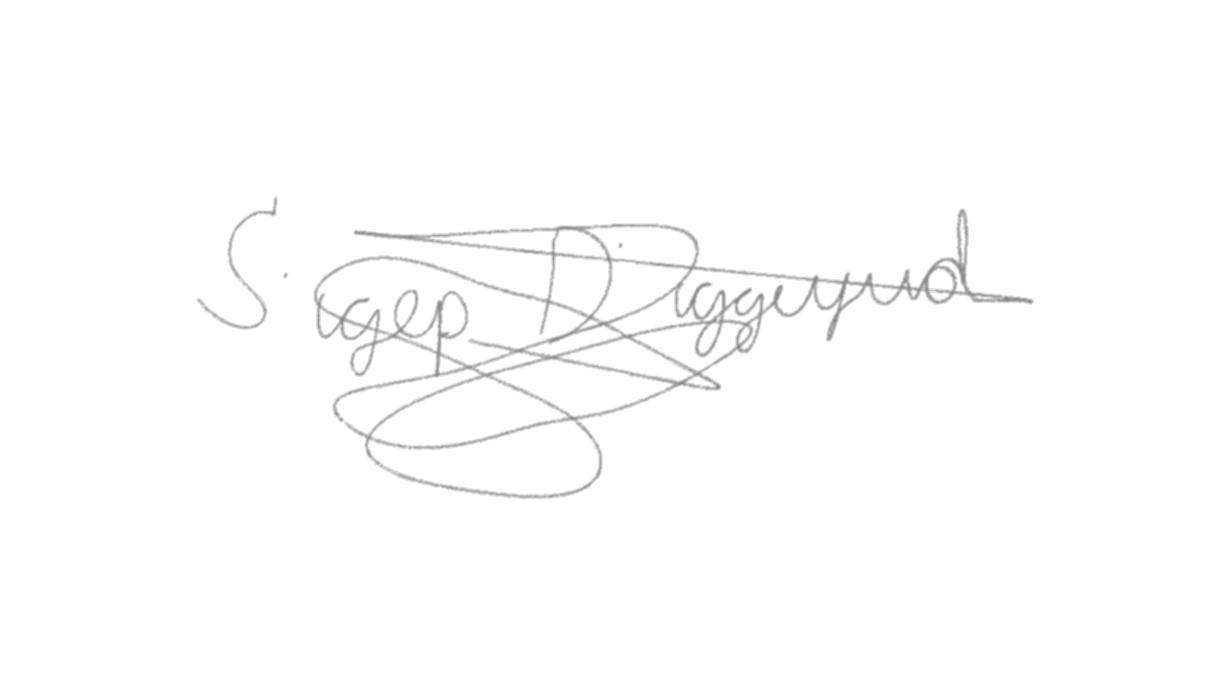 Sigep Diggeyud